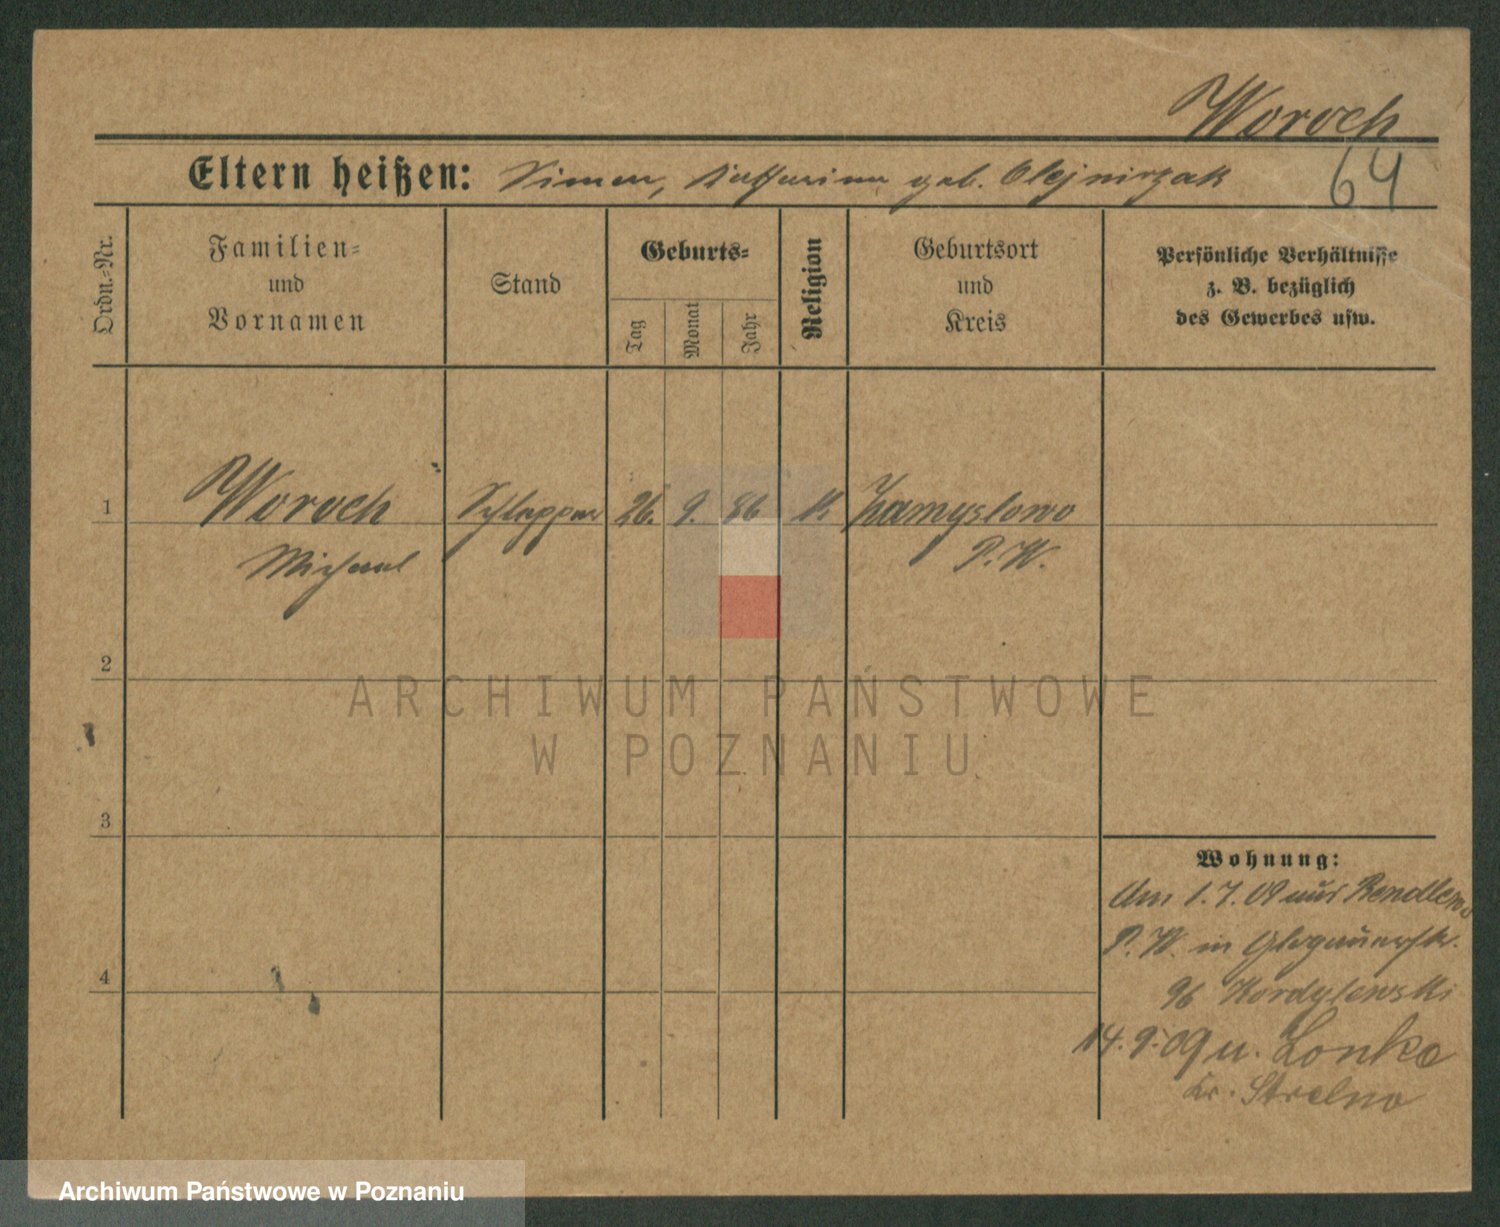 Woroch
64
Eltern heißen: Simon, Katharina geb. Olejniczak
Ordn.-Nr.
Familien-
und
Vornamen
Stand
Geburts-
Tag
Monat
Jahr
Religion
Geburtsort
und
Kreis
Persönliche Verhältnisse
z. B. bezüglich
des Gewerbes usw.
1
Woroch
26. 9. 86 K Zamyslowo
Michael
P. W.
2
ARCHIWUM PAŃSTWOWE
W POZNANIU
3
Wohnung:
Am 1. 7. 09 aus Rendlewo
P. W. in Glogauerstr.
96 Kordylewski
14. 9. 09 n. Lonke
Kr. Strelno
4
Archiwum Państwowe w Poznaniu